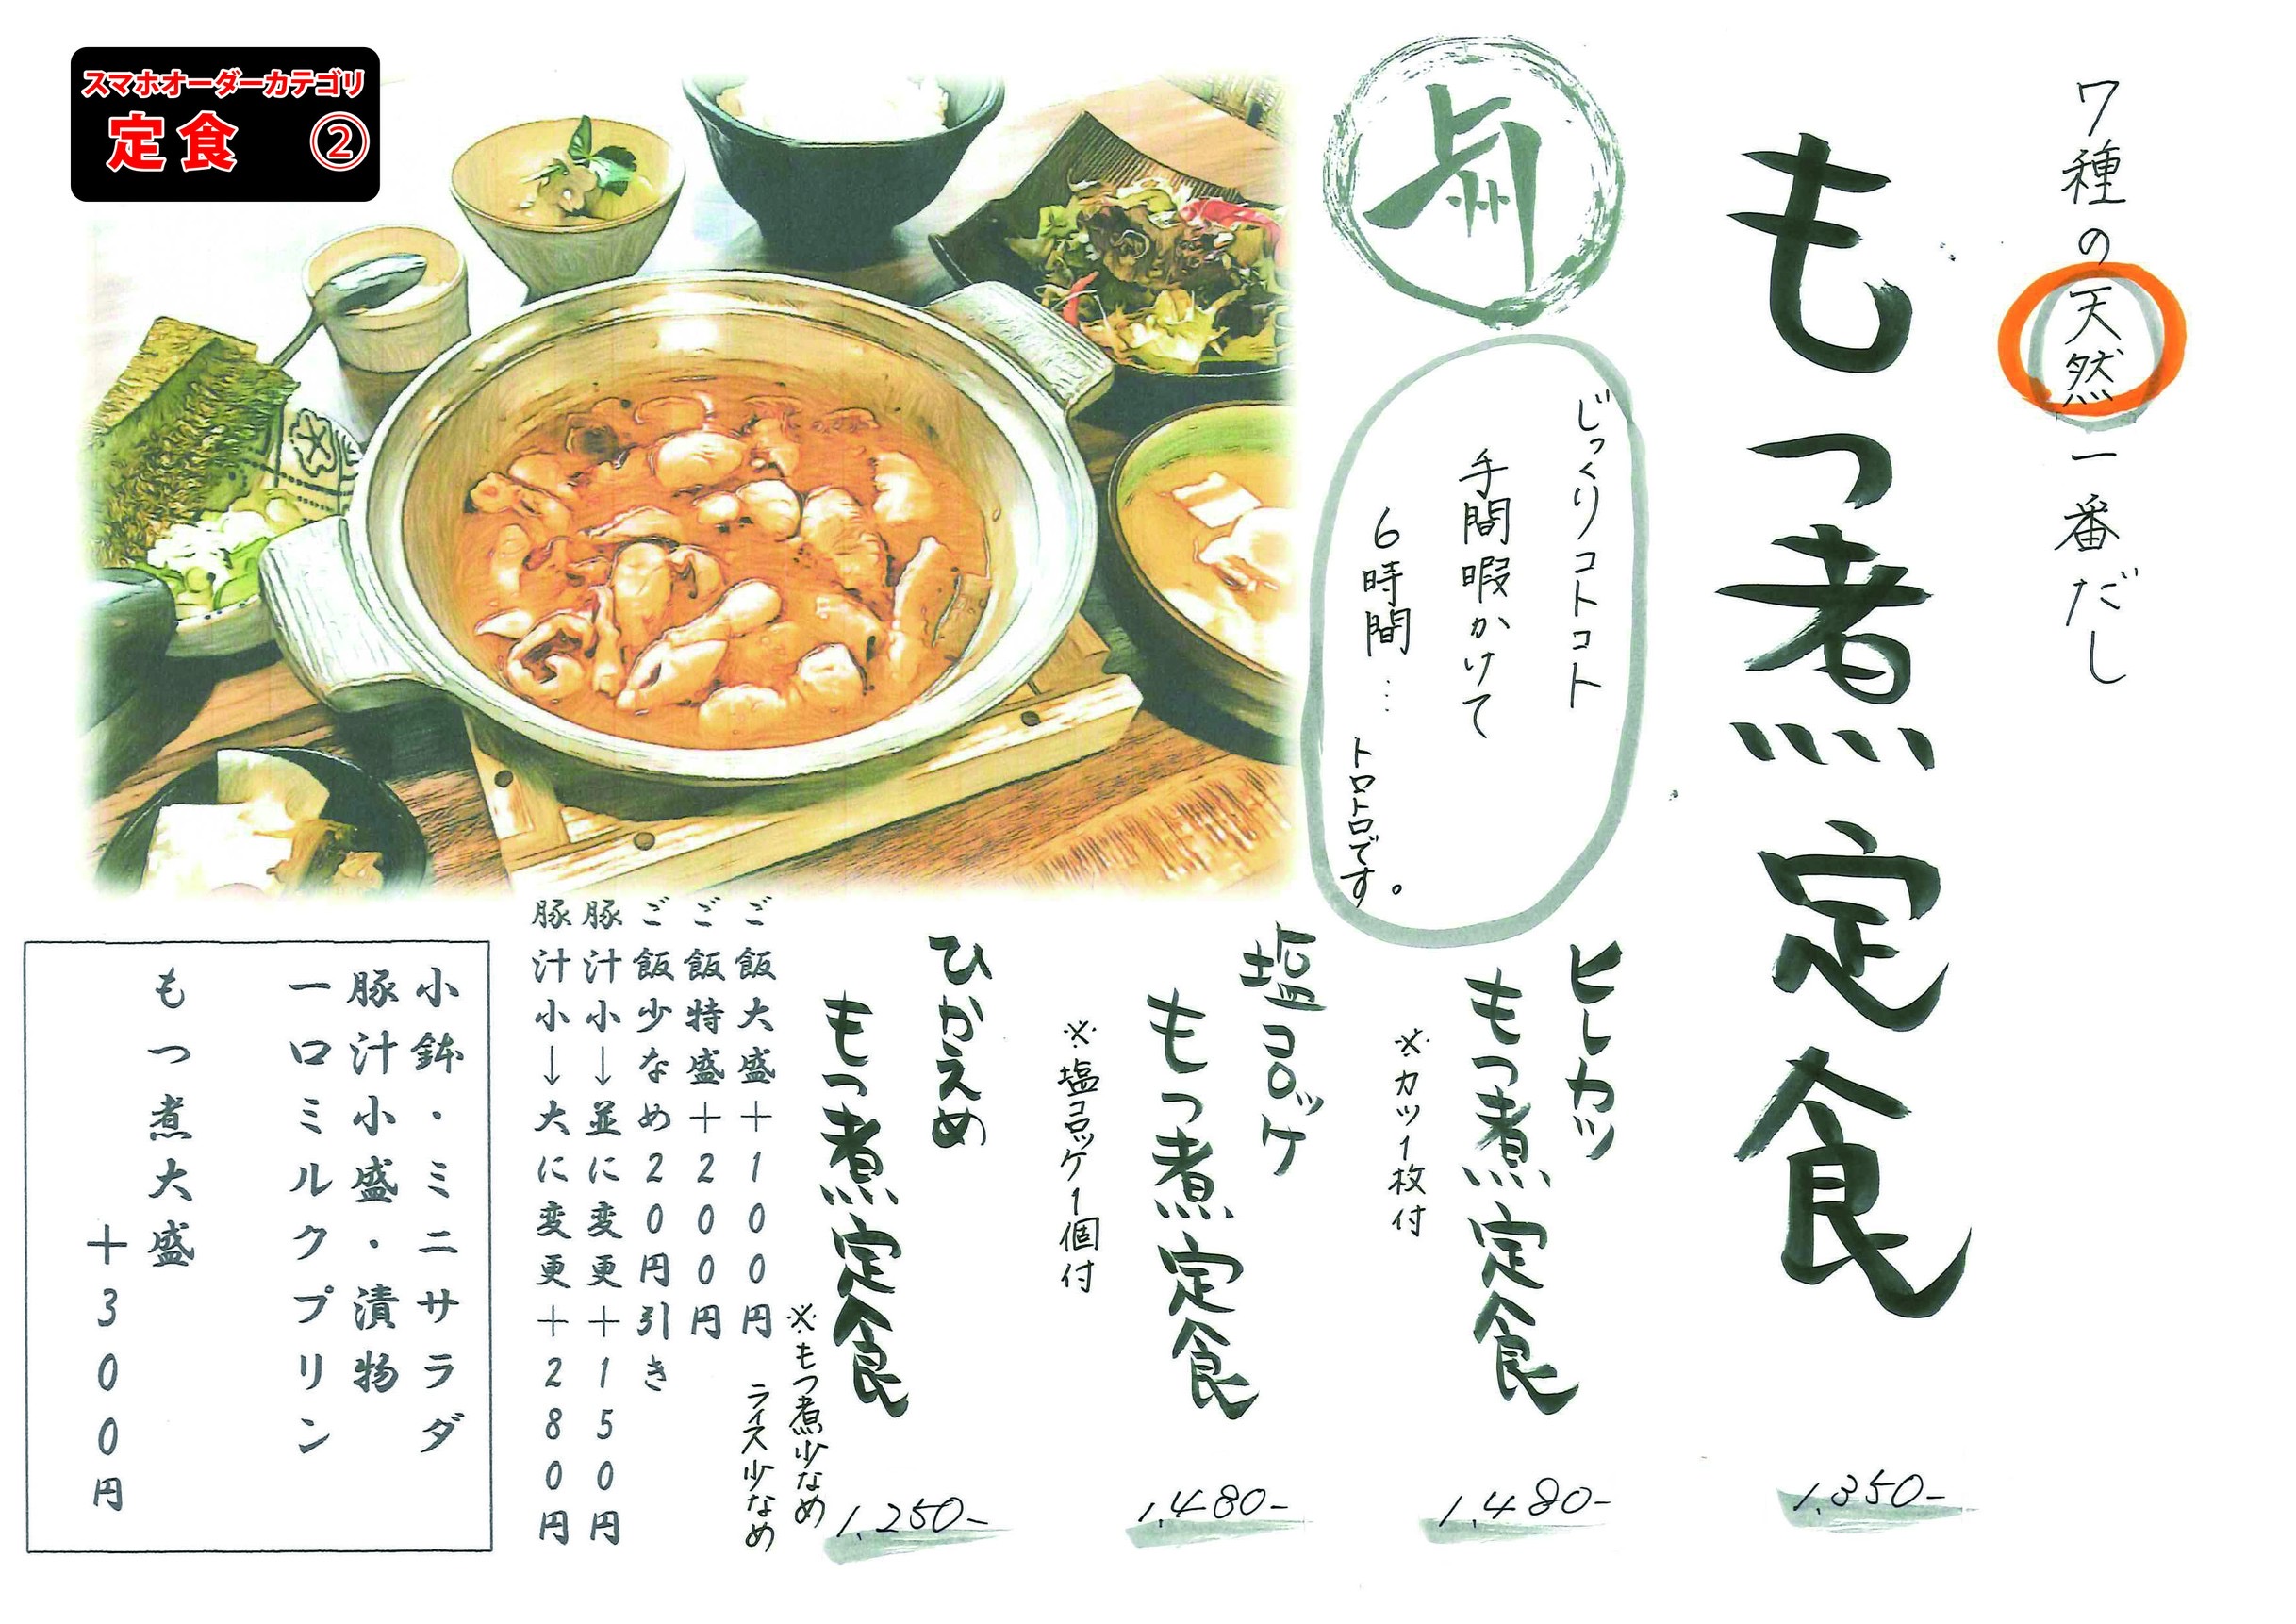 スマホオーダーカテゴリ
定食 ②
7種の天然一番だし
もつ煮定食
1,350-
上州
じっくりコトコト
手間暇かけて
6時間… トロトロです。
ヒレカツ
もつ煮定食
※カツ1枚付
1,480-
塩コロッケ
もつ煮定食
※塩コロッケ1個付
1,480-
ひかえめ
もつ煮定食
※もつ煮少なめ
ライス少なめ
1,250-
ご飯大盛+100円
ご飯特盛+200円
ご飯少なめ20円引き
豚汁小→並に変更+150円
豚汁小→大に変更+280円
小鉢・ミニサラダ
豚汁小盛・漬物
一口ミルクプリン
もつ煮大盛
+300円